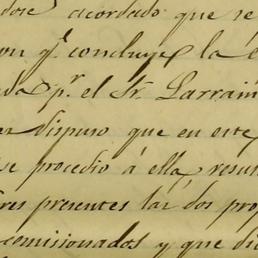 dose acordado que se
on q.e concluye la e
da p.r el Sr. Larrain
dispuso que en este
se procedio á ella, resul
res presentes las dos pro
comisionados y que di